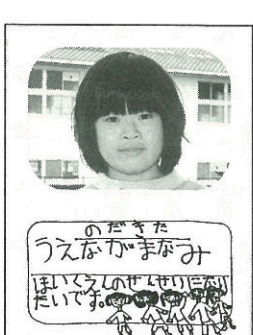 のだきた
うえながまなみ
ほいくえんのせんせいになり
たいです。